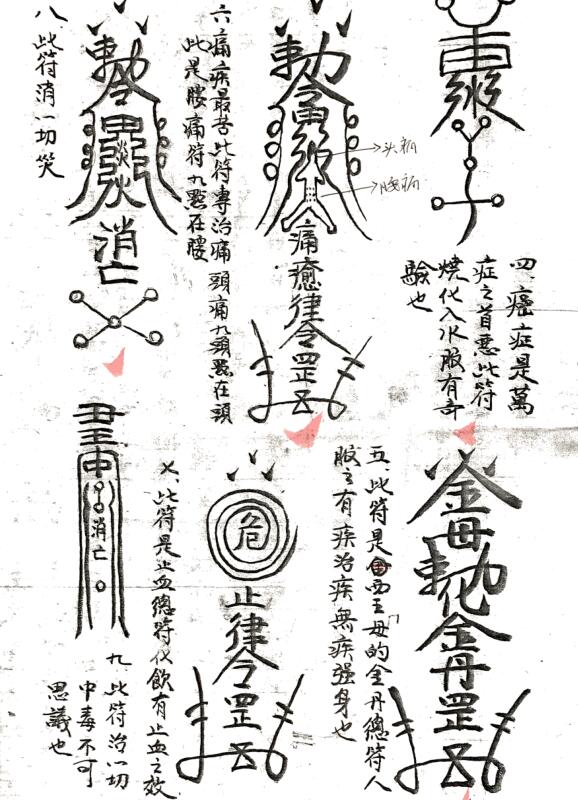 四、癌症是萬
症之首惡此符
燒化入水服有奇
驗也
勅令
头痛
腰痛
痛癒律令罡
六痛疾最苦此符專治痛 頭痛九點在頭
此是腰痛符九點在腰
勅令
消亡
八、此符消一切災
金母勅化金丹罡
五、此符是西王母的金丹總符人
服之有疾治疾無疾强身也
危
止律令罡
七、此符是止血總符化飲有止血之效
消亡
九、此符治一切
中毒不可
思議也